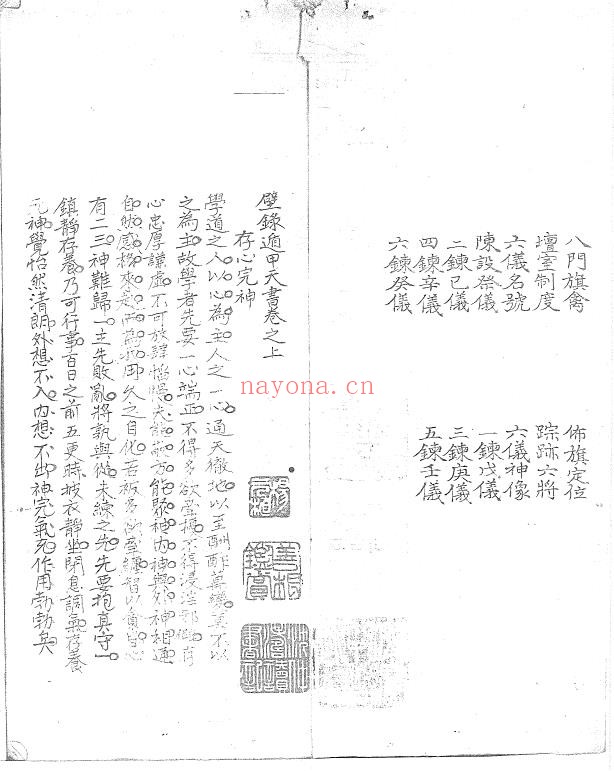 八門旗禽 佈旗定位
壇室制度 踪跡六將
六儀名號 六儀神像
陳設祭儀 一鍊戊儀
二鍊己儀 三鍊庚儀
四鍊辛儀 五鍊壬儀
六鍊癸儀
壁錄遁甲天書卷之上
存心完神
學道之人以心為主人之一心通天徹地以至酬酢萬變莫不以
之為主故學者先要一心端正不得多欲營擾不得浸淫邪僻
心忠厚謙虛不可放肆怡慢夫能敬方能聚神內神與外神相通
自然感格來
有二三神難歸一主先敗亂將孰與從未練之先先要抱真守一
鎮靜存養乃可行事百日之前五更時披衣靜坐閉息調氣存養
元神覺怡然清朗外想不入內想不出神完氣充作用勃勃矣
nayona.cn